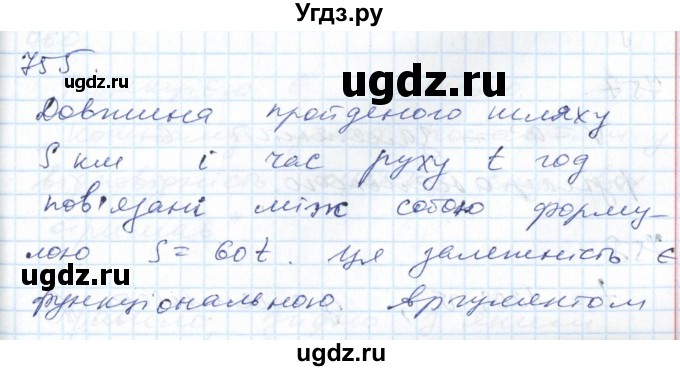 Угдз.ру
755.
ugdz.ru
ugdz.ru
Довжина пройденого шляху
S км і час руху t год
ugdz.ru
пов'язані між собою форму-
лою S = 60t. Ця залежність є
ugdz.ru
функціональною. Аргументом
ugdz.ru
ugdz.ru